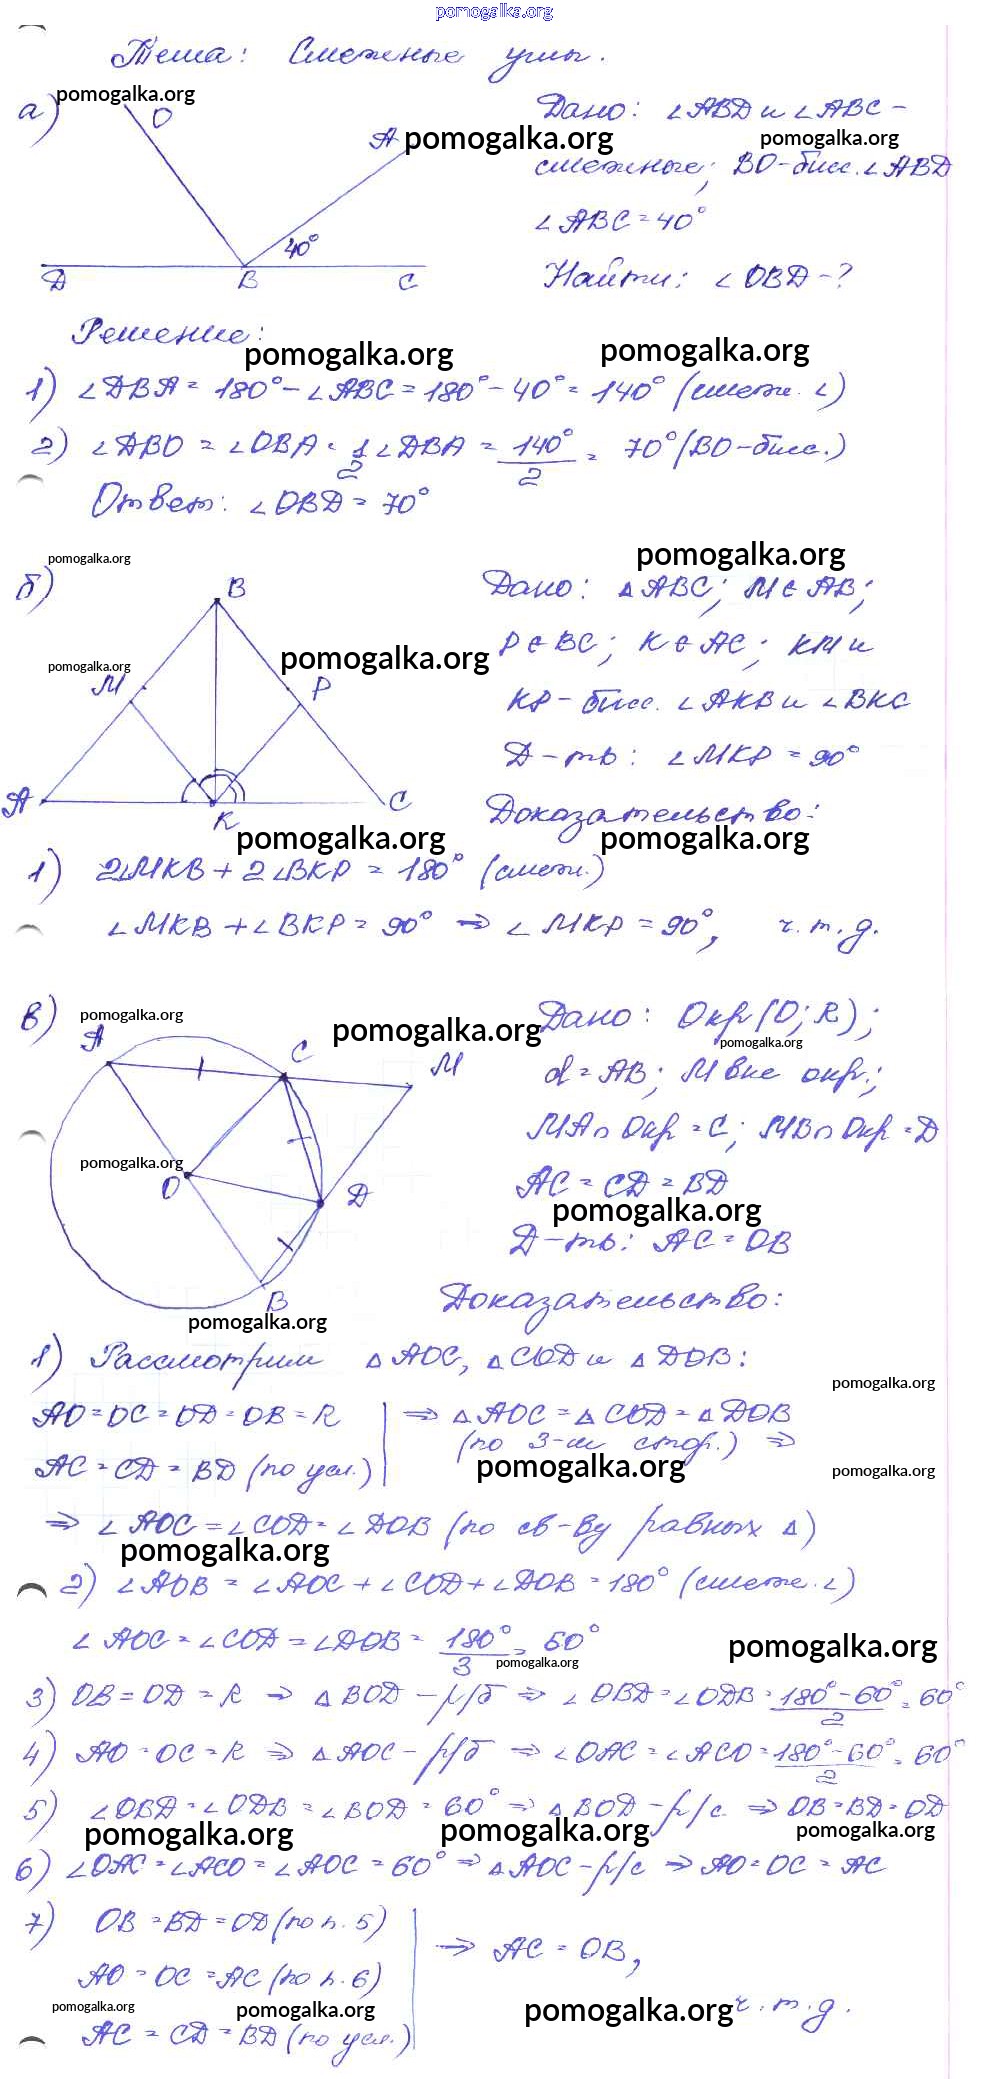 pomogalka.org
Тема: Смежные углы.
а)
pomogalka.org
O
A
pomogalka.org
40°
D B C
Дано: ∠ABD и ∠ABC -
pomogalka.org
смежные; BO - бисс. ∠ABD
∠ABC = 40°
Найти: ∠OBD - ?
Решение:
pomogalka.org
pomogalka.org
1) ∠DBA = 180° - ∠ABC = 180° - 40° = 140° (смежн. ∠)
2) ∠ABO = ∠OBA = 1/2 ∠DBA = 140°/2 = 70° (BO - бисс.)
Ответ: ∠OBD = 70°
pomogalka.org
pomogalka.org
б)
B
pomogalka.org
pomogalka.org
M P
A K C
Дано: △ABC; M ∈ AB;
P ∈ BC; K ∈ AC; KM и
KP - бисс. ∠AKB и ∠BKC
Д-ть: ∠MKP = 90°
Доказательство:
pomogalka.org
pomogalka.org
1) 2∠MKB + 2∠BKP = 180° (смежн.)
∠MKB + ∠BKP = 90° ⇒ ∠MKP = 90°, ч.т.д.
в)
pomogalka.org
pomogalka.org
A C M
pomogalka.org
O D
B
pomogalka.org
Дано: Окр (O; R);
pomogalka.org
d = AB; M вне окр.;
MA ∩ Окр = C; MB ∩ Окр = D
AC = CD = BD
pomogalka.org
Д-ть: AC = OB
Доказательство:
1) Рассмотрим △AOC, △COD и △DOB:
pomogalka.org
AO = OC = OD = OB = R ⇒ △AOC = △COD = △DOB
(по 3-м стор.) ⇒
AC = CD = BD (по усл.)
pomogalka.org
pomogalka.org
⇒ ∠AOC = ∠COD = ∠DOB (по св-ву равных △)
pomogalka.org
2) ∠AOB = ∠AOC + ∠COD + ∠DOB = 180° (смежн. ∠)
∠AOC = ∠COD = ∠DOB = 180°/3 = 60°
pomogalka.org
pomogalka.org
3) OB = OD = R ⇒ △BOD - р/б ⇒ ∠OBD = ∠ODB = 180° - 60°/2 = 60°
4) AO = OC = R ⇒ △AOC - р/б ⇒ ∠OAC = ∠ACO = 180° - 60°/2 = 60°
5) ∠OBD = ∠ODB = ∠BOD = 60° ⇒ △BOD - р/с. ⇒ OB = BD = OD
pomogalka.org
pomogalka.org
pomogalka.org
6) ∠OAC = ∠ACO = ∠AOC = 60° ⇒ △AOC - р/с ⇒ AO = OC = AC
7) OB = BD = OD (по п. 5)
⇒ AC = OB,
AO = OC = AC (по п. 6)
pomogalka.org
pomogalka.org
pomogalka.org
ч.т.д.
AC = CD = BD (по усл.)